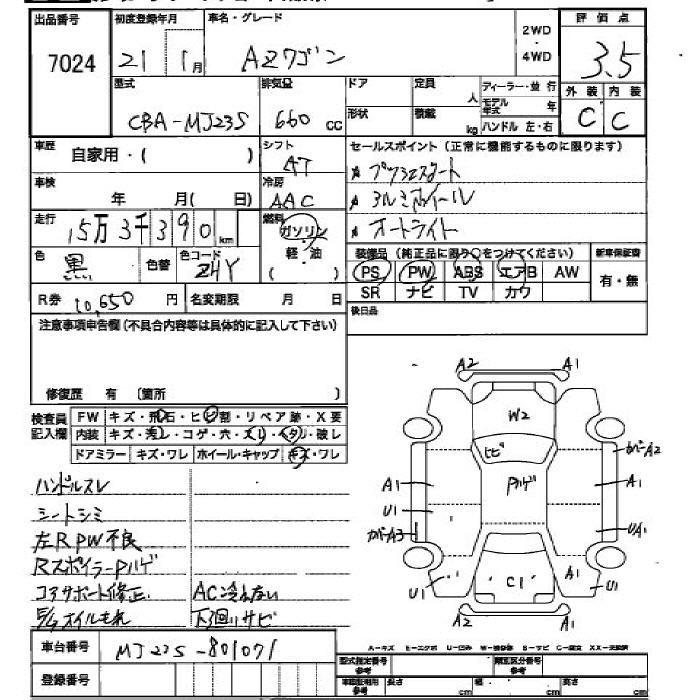 出品番号 初度登録年月 車名・グレード 2WD・4WD 評価点
7024 21 1月 AZワゴン 3.5
型式 排気量 ドア 定員 人 ディーラー・並行 外装 内装
CBA-MJ23S 660 CC 形状 積載 kg モデル年式 年 C C
ハンドル 左・右
車歴 自家用・( ) シフト AT セールスポイント(正常に機能するものに限ります)
車検 年 月( 日) 冷房 AAC
★ プッシュスタート
★ アルミホイール
★ オートライト
走行 15万3千390km 燃料 ガソリン・軽・油 ( )
色 黒 色替 色コード ZHY
装備品(純正品に限り○をつけてください) 新車保証書
PS PW ABS エアB AW 有・無
SR ナビ TV カワ
R券 10,650円 名変期限 月 日 後日品
注意事項申告欄(不具合内容等は具体的に記入して下さい)
修復歴 有 〔箇所 〕
検査員記入欄 FW キズ・飛石・ヒビ割・リペア跡・X要
内装 キズ・汚レ・コゲ・穴・スレ・ヘタリ・破レ
ドアミラー キズ・ワレ ホイール・キャップ キズ・ワレ
ハンドルスレ
シートシミ
左RPW不良
RスポイラーPハゲ
コアサポート修正 AC冷えない
E/Gオイルもれ 下回りサビ
A2 A1
W2
ヒビ
カバーA2
A1 Pハゲ A1
U1 UA1
カバーA3
U1 C1 A1 U1
A2 A2
A-キズ E-エクボ U-凹み
車台番号 MJ23S-801071
型式指定番号 参考 類別区分番号 参考
登録番号 参考 長さ cm 幅 cm 高さ cm